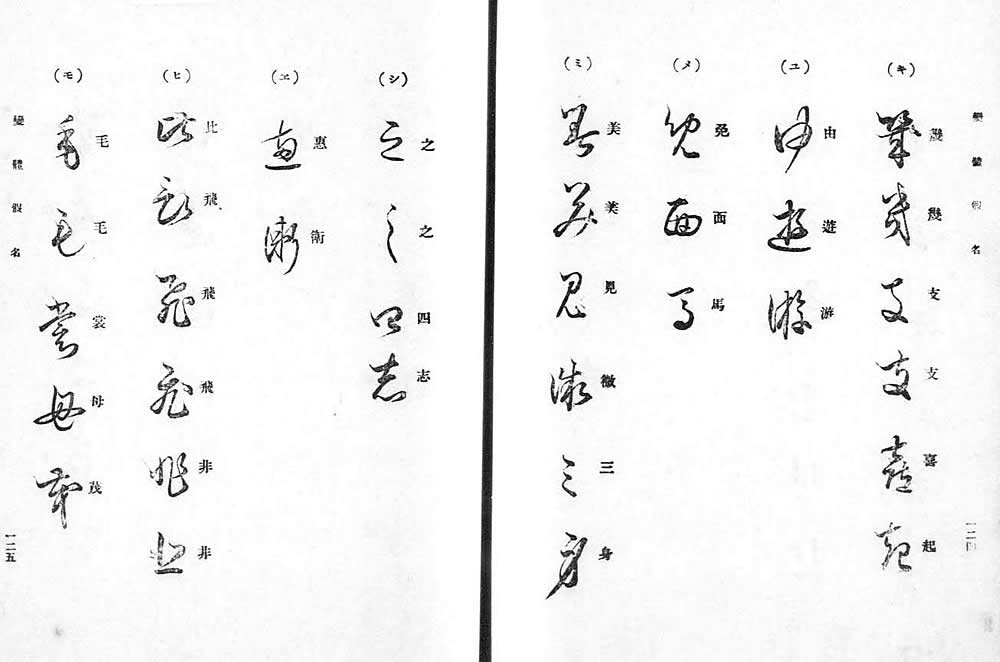 變體假名
一二四
(キ)
幾 幾 支 支 喜 起
(ユ)
由 遊 游
(メ)
免 面 馬
(ミ)
美 美 見 微 三 身
(シ)
之 之 四 志
(ヱ)
惠 衛
(ヒ)
比 飛 飛 飛 非 非
(モ)
毛 毛 裳 母 茂
變體假名
一二五